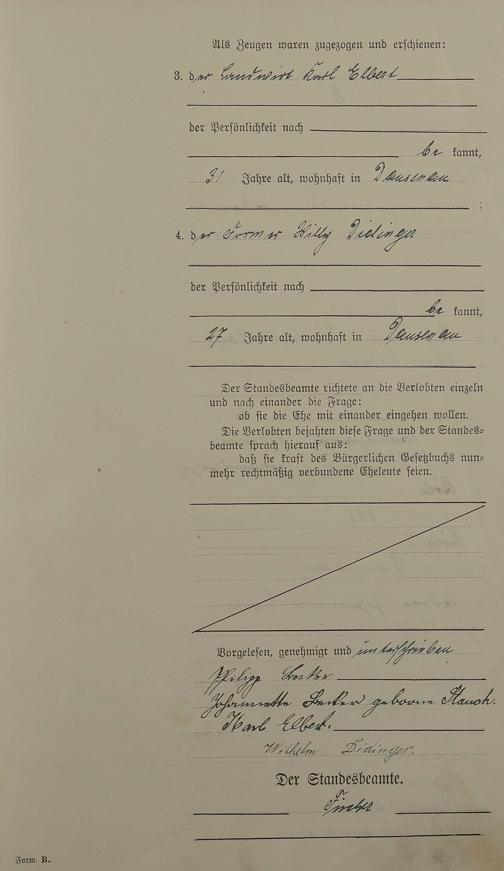 Als Zeugen waren zugezogen und erschienen:
3. der Landwirt Karl Elbert
der Persönlichkeit nach
be kannt,
31 Jahre alt, wohnhaft in Dausenau
;
4. der Former Willy Didinger
der Persönlichkeit nach
be kannt,
27 Jahre alt, wohnhaft in Dausenau
Der Standesbeamte richtete an die Verlobten einzeln
und nach einander die Frage:
ob sie die Ehe mit einander eingehen wollen.
Die Verlobten bejahten diese Frage und der Standes-
beamte sprach hierauf aus:
daß sie kraft des Bürgerlichen Gesetzbuchs nun-
mehr rechtmäßig verbundene Eheleute seien.
Vorgelesen, genehmigt und unterschrieben
Philipp Becker
Johannette Becker geborne Stauch.
Karl Elbert.
Wilhelm Didinger.
Der Standesbeamte.
Form. B.